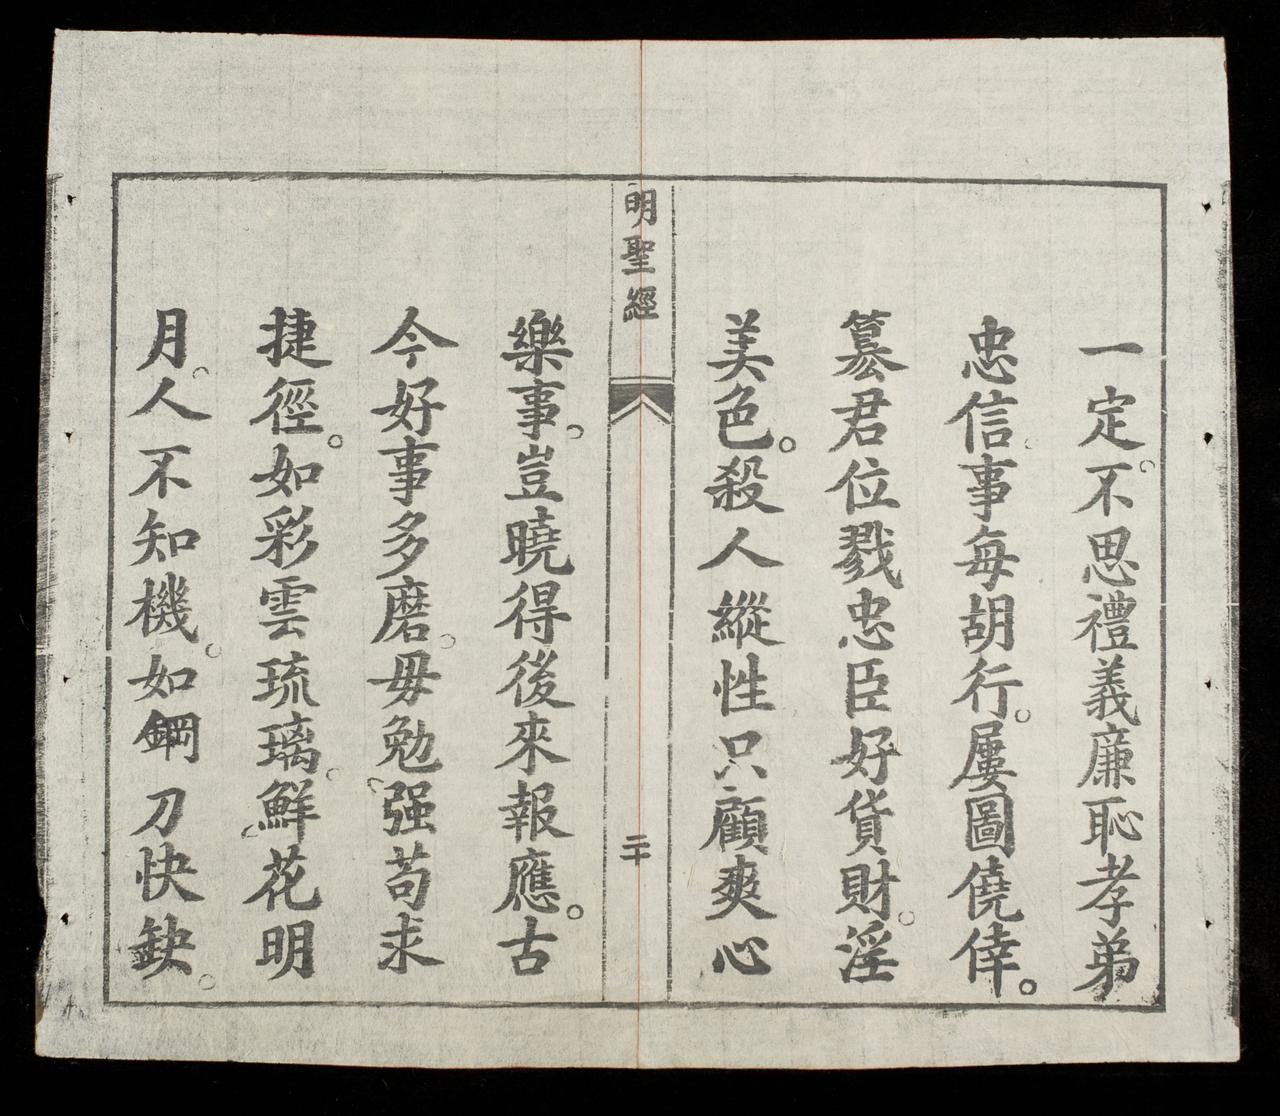 一定。不思禮義廉恥孝弟
忠信事每胡行。屢圖僥倖。
篡君位戮忠臣好貨財。淫
美色。殺人縱性只顧爽心
明聖經
二十
樂事。豈曉得後來報應。古
今好事多磨。毋勉强苟求
捷徑。如彩雲琉璃。鮮花明
月。人不知機。如鋼刀快鈌。